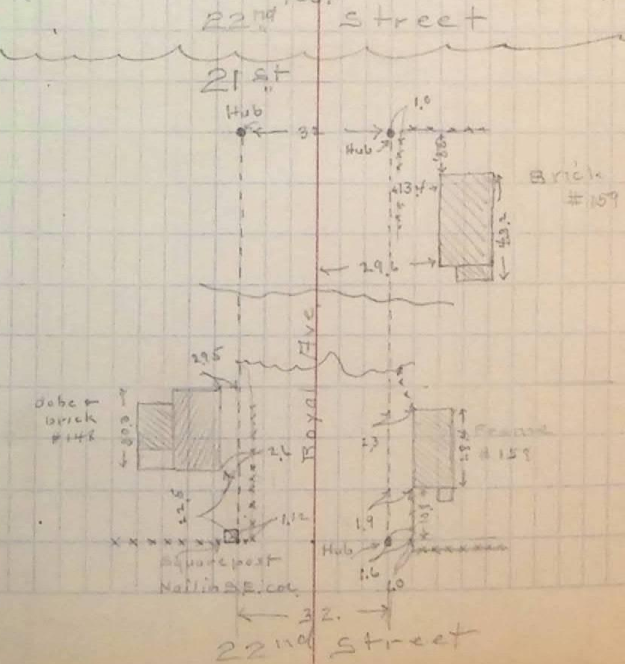 22nd Street
21 st
Hub
1.0
32
Hub
13.4
Brick
#159
29.6
Royal Ave
29.5
brick
2.6
2.3
Frame
22.5
1.12
1.9
Hub
Square post
1.6
1.0
Nail in S.E. cor.
32.
22nd Street